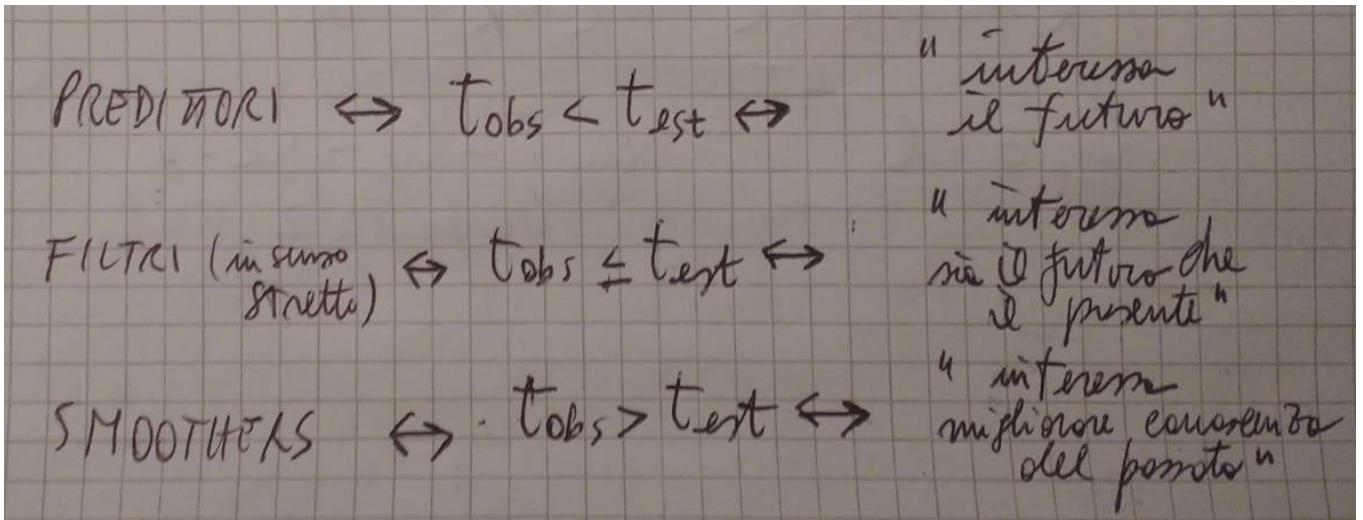 PREDITTORI ↔ tobs < test ↔ " interessa
il futuro "
FILTRI (in senso
stretto) ↔ tobs ≤ test ↔ " interessa
sia il futuro che
il presente "
SMOOTHERS ↔ tobs > test ↔ " interessa
migliorare conoscenza
del passato "